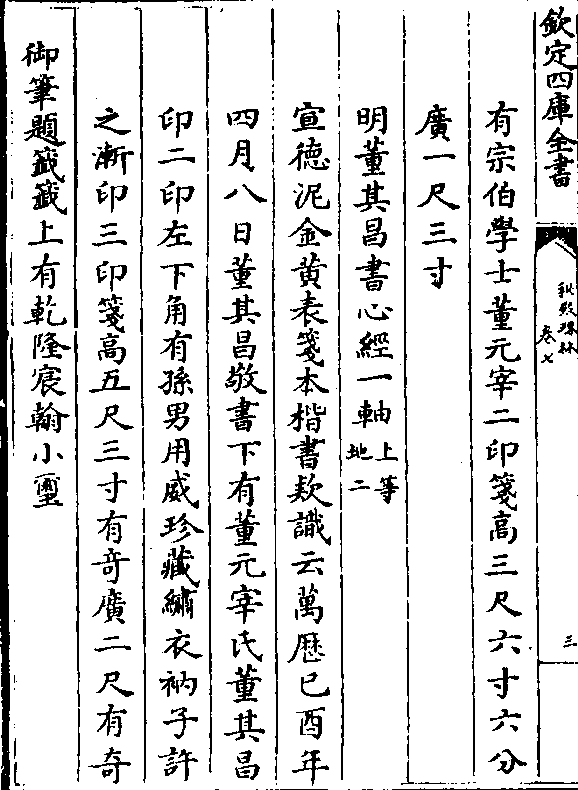 欽定四庫全書
秘殿珠林
卷七
三
有宗伯學士董元宰二印箋髙三尺六寸六分
廣一尺三寸
明董其昌書心經一軸上等地二
宣徳泥金黄表箋本楷書欵識云萬歴己酉年
四月八日董其昌敬書下有董元宰氏董其昌
印二印左下角有孫男用威珍藏繡衣衲子許
之漸印三印箋髙五尺三寸有竒廣二尺有竒
御筆題籖籖上有乾隆宸翰小璽